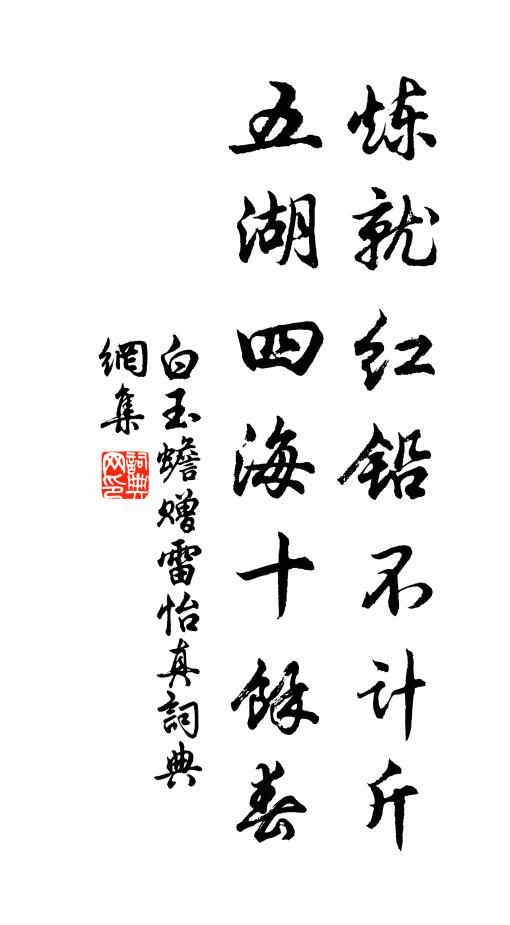 炼就红铅不计斤
五湖四海十馀春
白玉蟾赠雷怡真詞典
網集
詞典网印